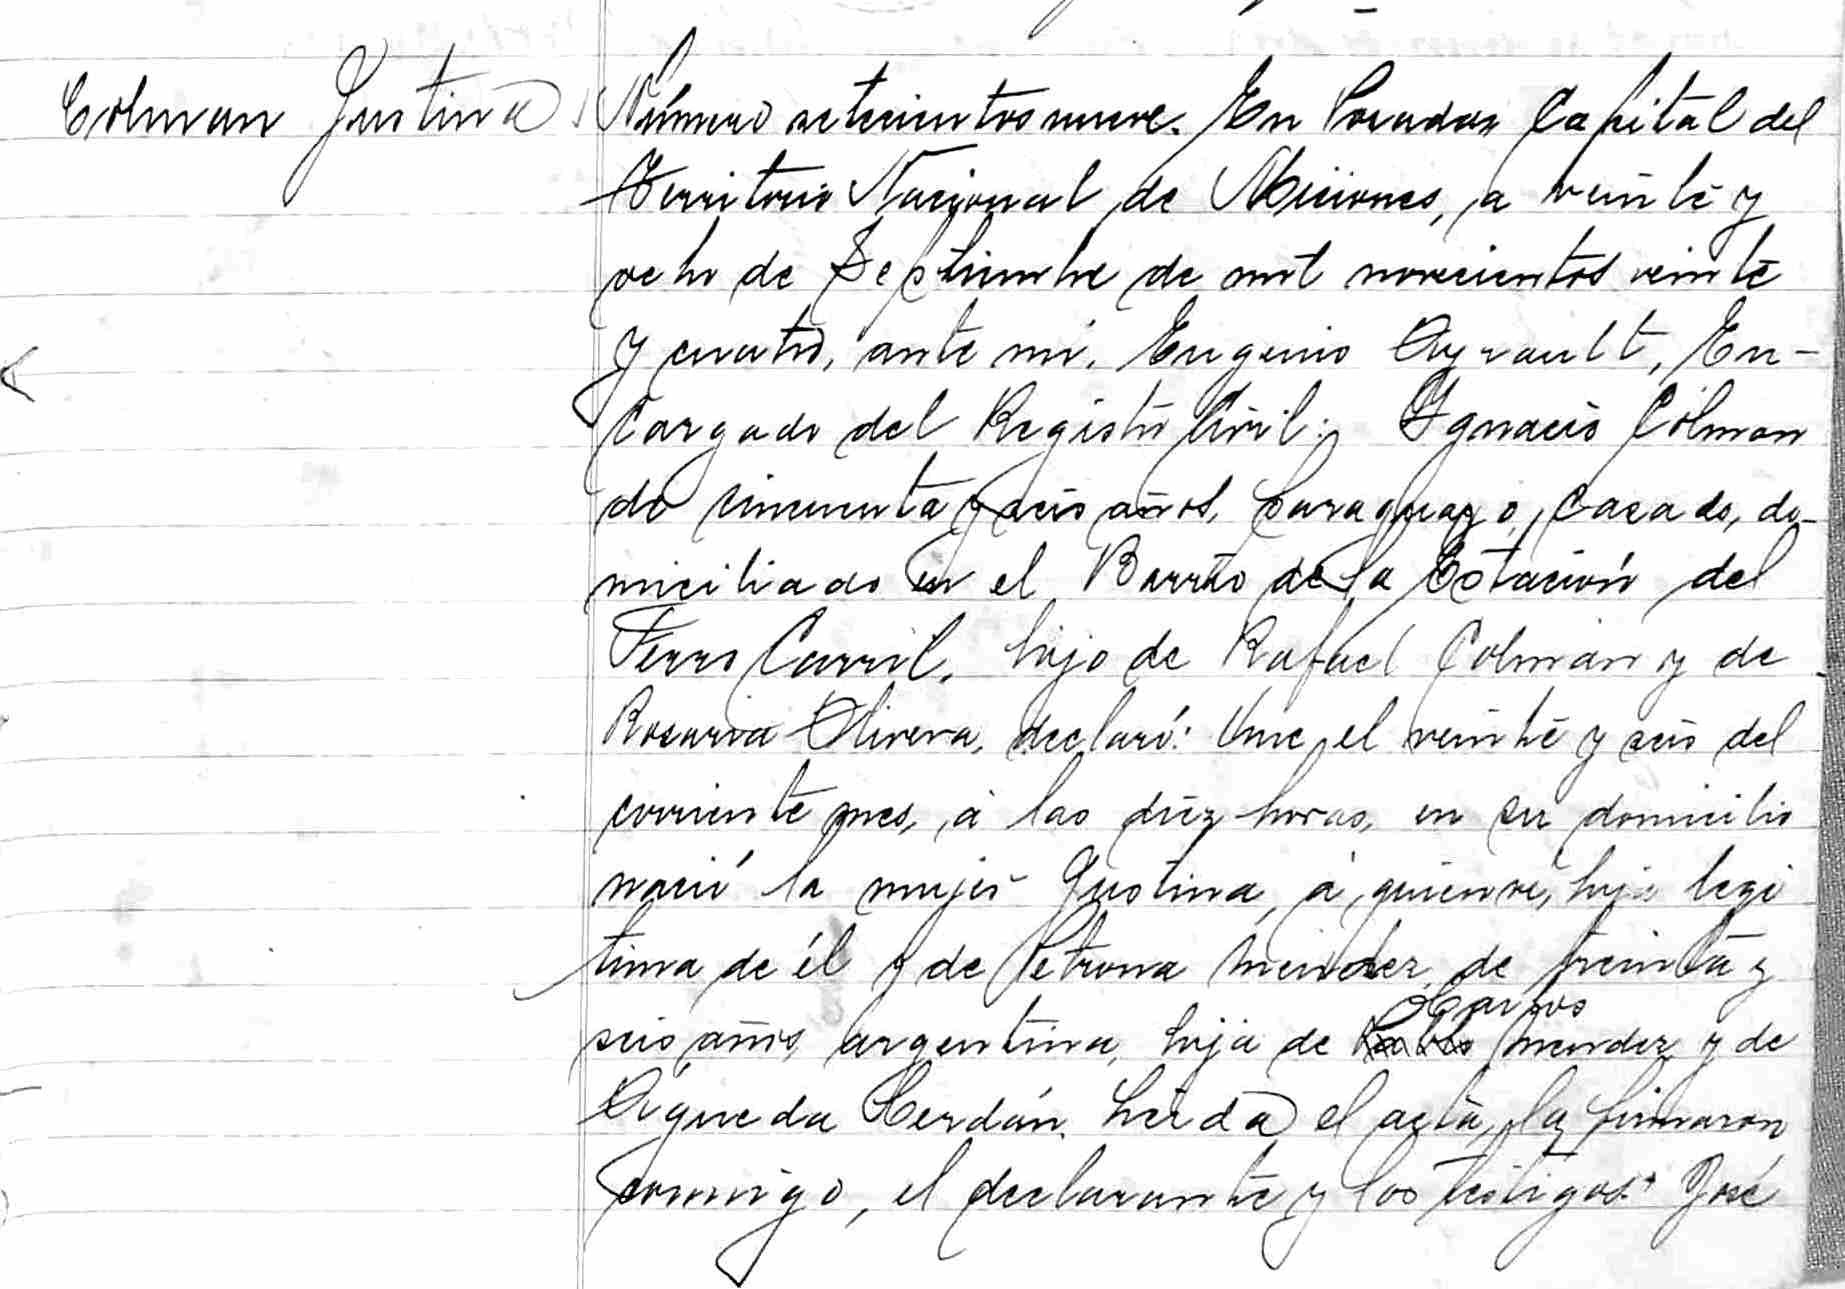 Colman Justina
Número setecientos nueve. En Posadas Capital del
Territorio Nacional de Misiones, a veinte y
ocho de Septiembre de mil novecientos veinte
y cuatro, ante mi, Eugenio Ayrault, En-
cargado del Registro Civil: Ygnacio Colman
de cincuenta y seis años, paraguayo, casado, do-
miciliado en el Barrio de la Estación del
Ferro Carril, hijo de Rafael Colmán y de
Rosaria Olivera, declaró: Que el veinte y seis del
corriente mes, á las diez horas, en su domicilio
nació la mujer Justina, á quien ví, hija legi
tima de él y de Petrona Mendez, de treinta y
Carlos
seis años, argentina, hija de Pablo Mendez y de
Agueda Cerdán. Leida el acta, la firmaron
conmigo, el declarante y los testigos: José